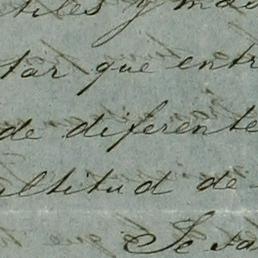 tiles y má
tar que entr
de diferente
ultitud de
Se sa